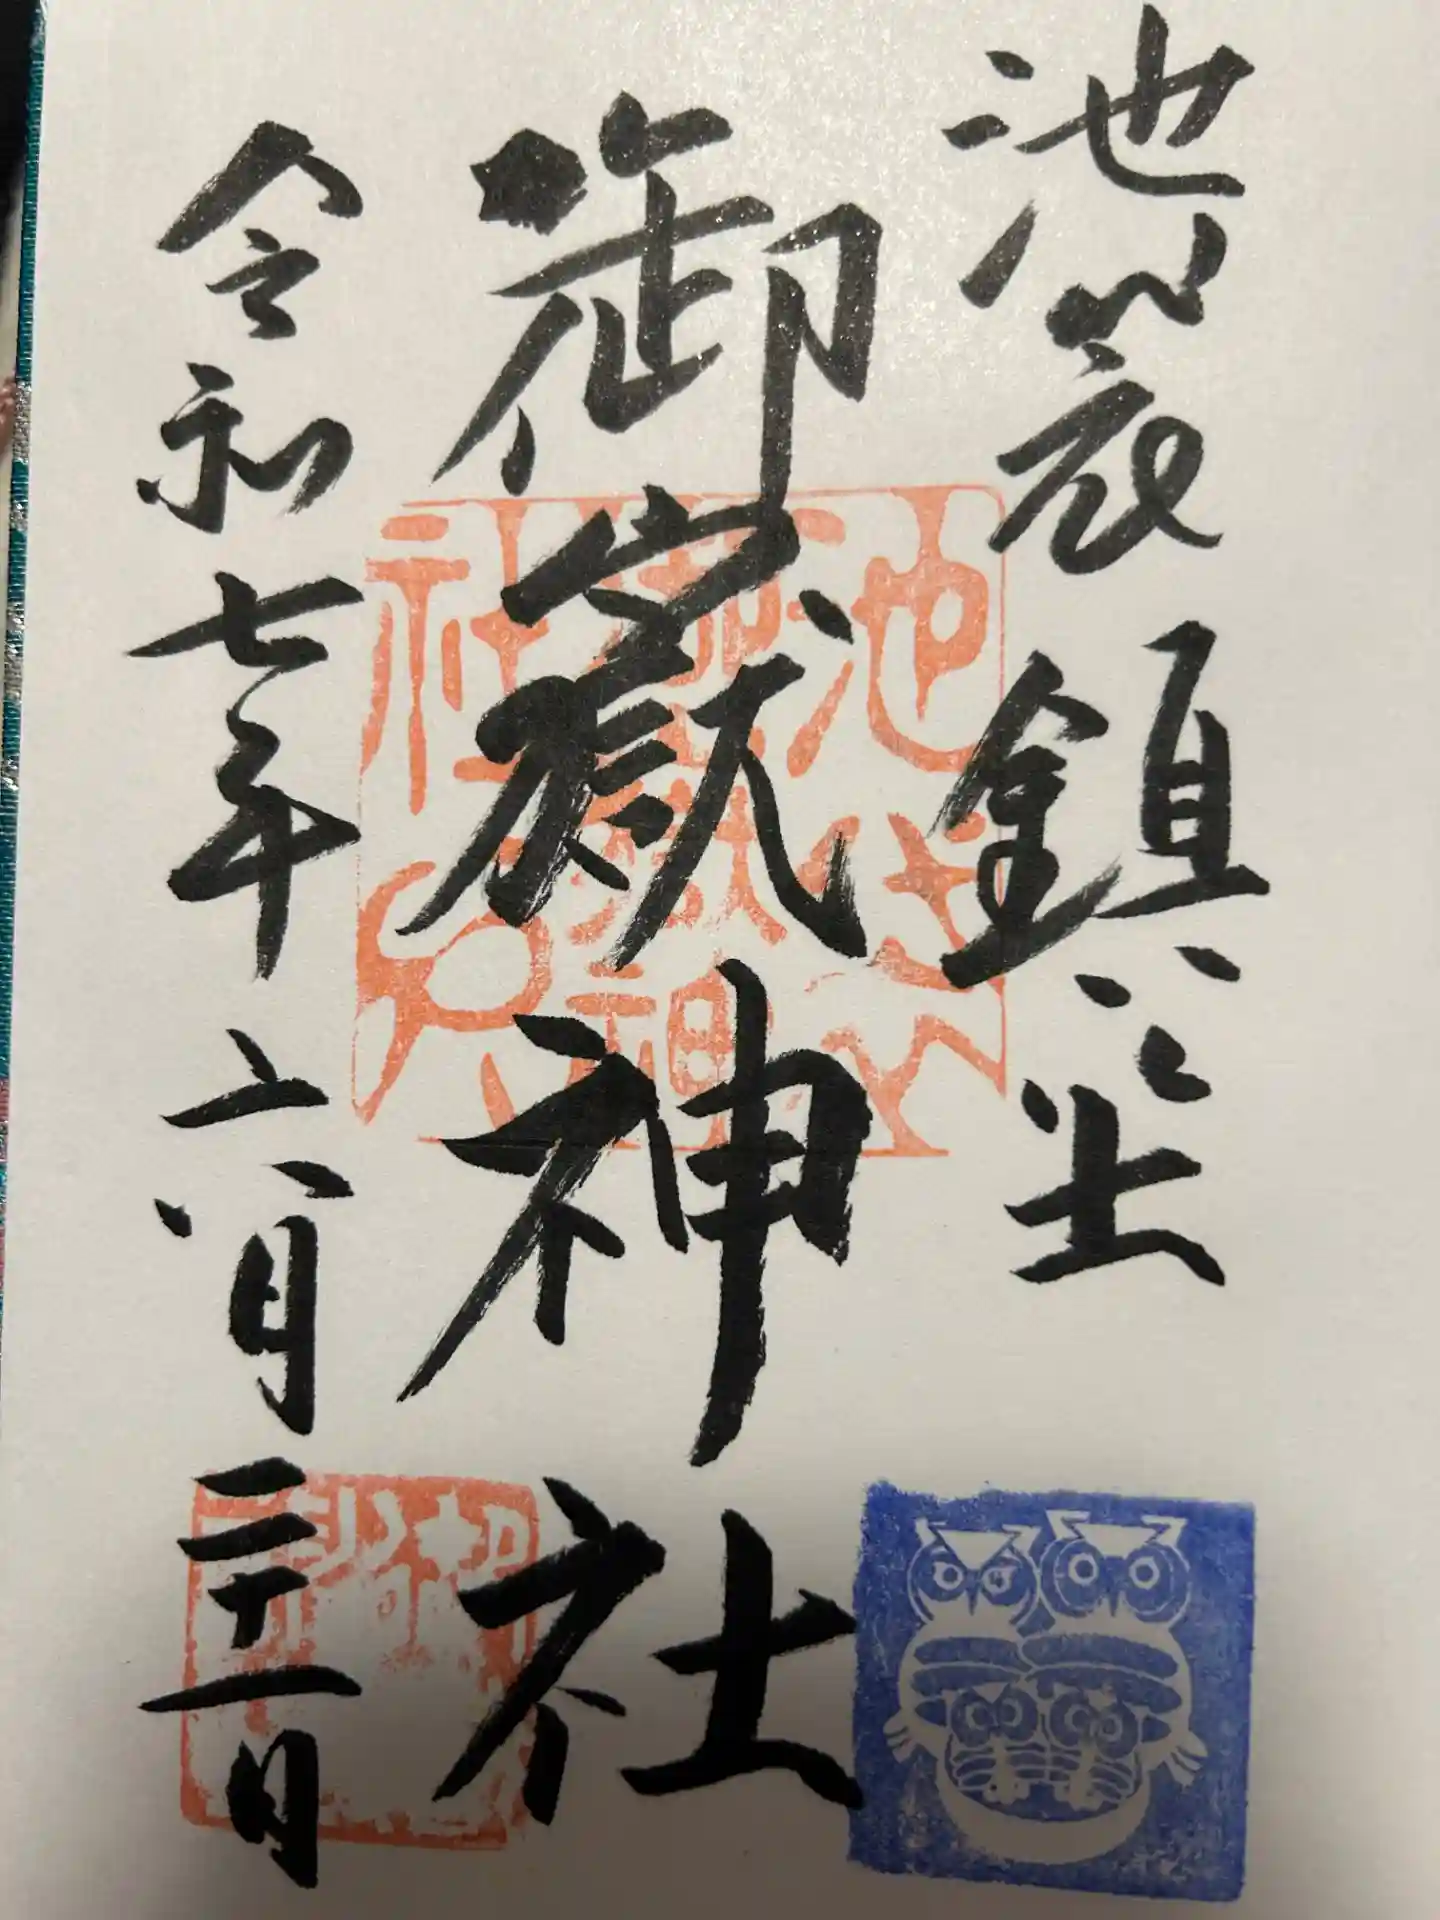 池袋鎮座
御嶽神社
令和七年六月二十一日
池袋御嶽神社